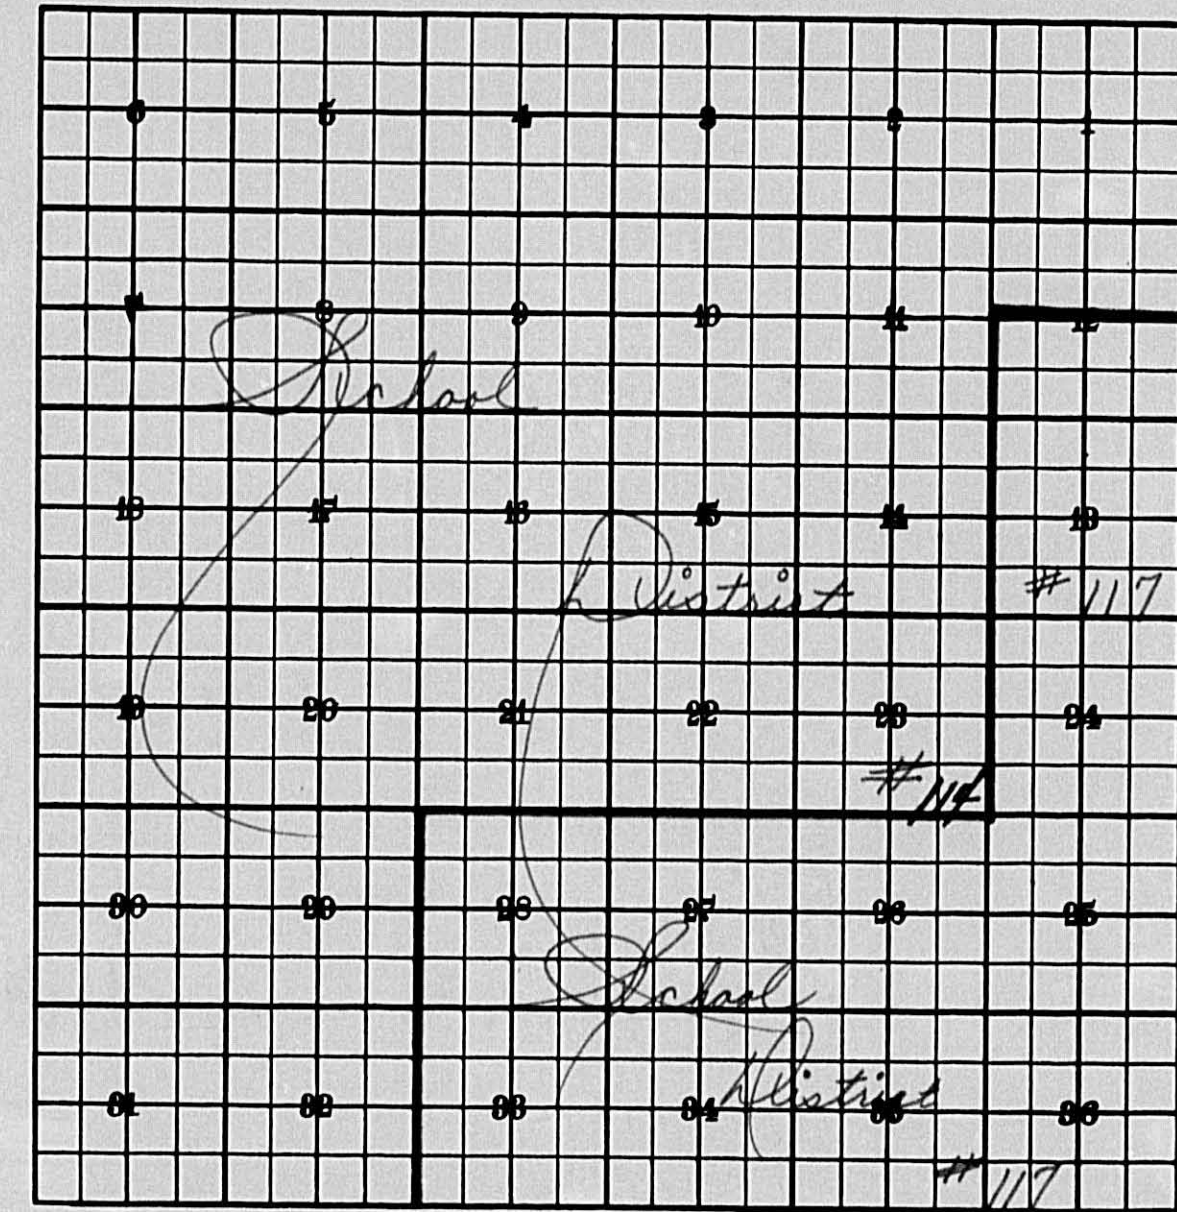 6 5 4 3 2 1
7 8 9 10 11 12
School
18 17 16 15 14 13
District # 117
19 20 21 22 23 24
# 114
30 29 28 27 26 25
School
District
31 32 33 34 35 36
# 117